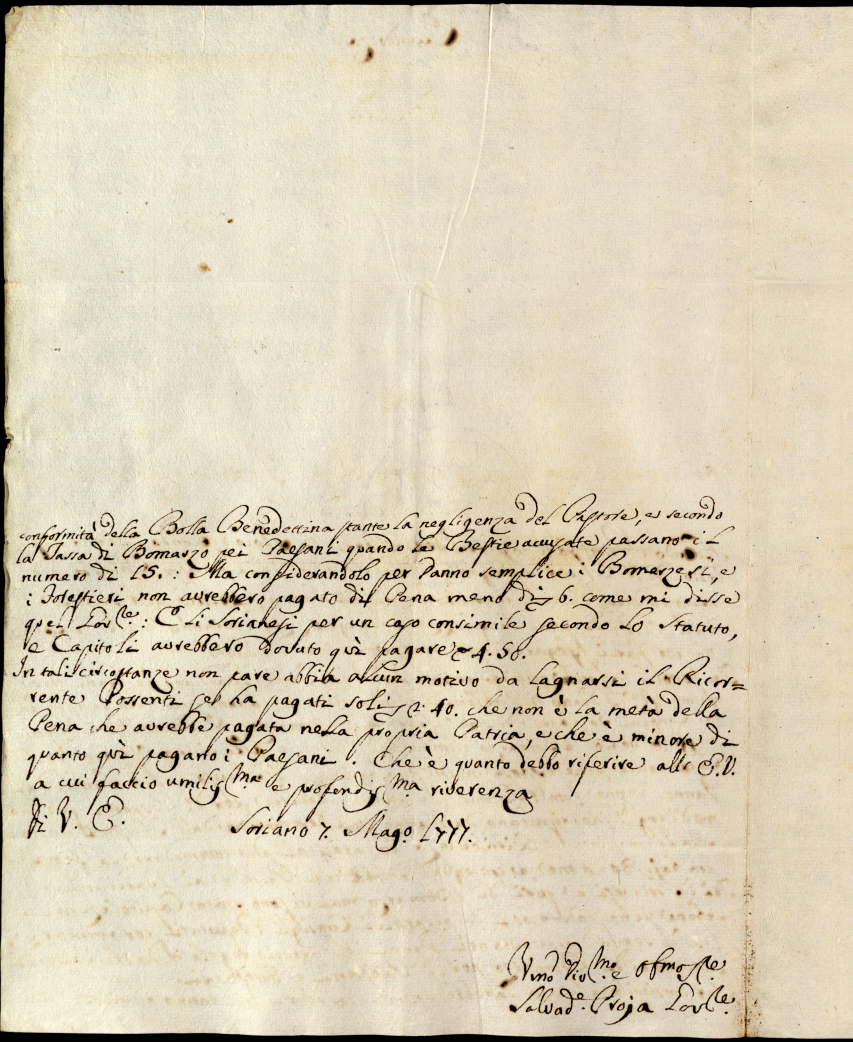 conformità della Bolla Benedettina stante la negligenza del Pastore, e secondo
la Tassa di Bomarzo pei Paesani quando le Bestie accusate passano il
numero di 15. : Ma considerandolo per Danno semplice i Bomarzesi, e
i Forestieri non avrebbero pagato di Pena meno di 6. come mi disse
quel Gov.re : E li Sorianesi per un caso consimile secondo lo Statuto,
e Capitoli avrebbero dovuto quì pagare 4. 50.
In tali circostanze non pare abbia alcun motivo da lagnarsi il Ricor=
rente Possenti se ha pagati soli 2. 40. che non è la metà della
Pena che avrebbe pagata nella propria Patria, e che è minore di
quanto quì pagano i Paesani . Che è quanto debbo riferire all' E. V.
a cui faccio umilis.ma e profondis.ma riverenza
Di V. E. Soriano 7. Mag.o 1777.
Umo Div.mo e
Salvad.e Proja Gov.re